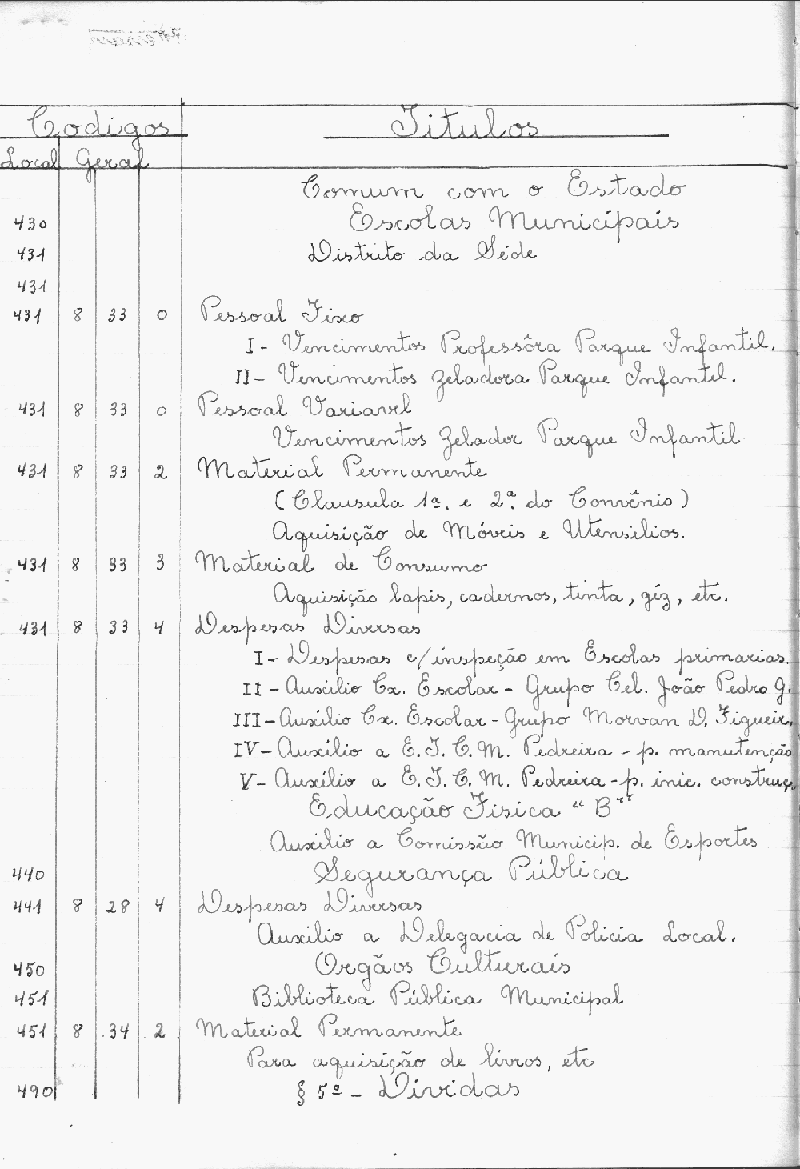 Codigos Titulos
Local Geral
Comum com o Estado
430 Escolas Municipais
431 Distrito da Séde
431
431 8 33 0 Pessoal Fixo
I - Vencimentos Professôra Parque Infantil.
II - Vencimentos Zeladora Parque Infantil.
431 8 33 0 Pessoal Variavel
Vencimentos Zelador Parque Infantil
431 8 33 2 Material Permanente
(Clausula 1ª. e 2ª. do Convênio)
Aquisição de Móveis e Utensilios.
431 8 33 3 Material de Consumo
Aquisição lapis, cadernos, tinta, giz, etc.
431 8 33 4 Despesas Diversas
I - Despesas c/inspeção em Escolas primarias.
II - Auxilio Cx. Escolar - Grupo Cel. João Pedro G.
III - Auxilio Cx. Escolar - Grupo Morvan D. Figueir.
IV - Auxilio a E.I.C.M. Pedreira - p. manutenção
V - Auxilio a E.I.C.M. Pedreira - p. inic. construç.
Educação Fisica "B"
Auxilio a Comissão Municip. de Esportes
440 Segurança Pública
441 8 28 4 Despesas Diversas
Auxilio a Delegacia de Policia Local.
450 Orgãos Culturais
451 Biblioteca Pública Municipal
451 8 34 2 Material Permanente
Para aquisição de livros, etc
490 § 5º - Dividas